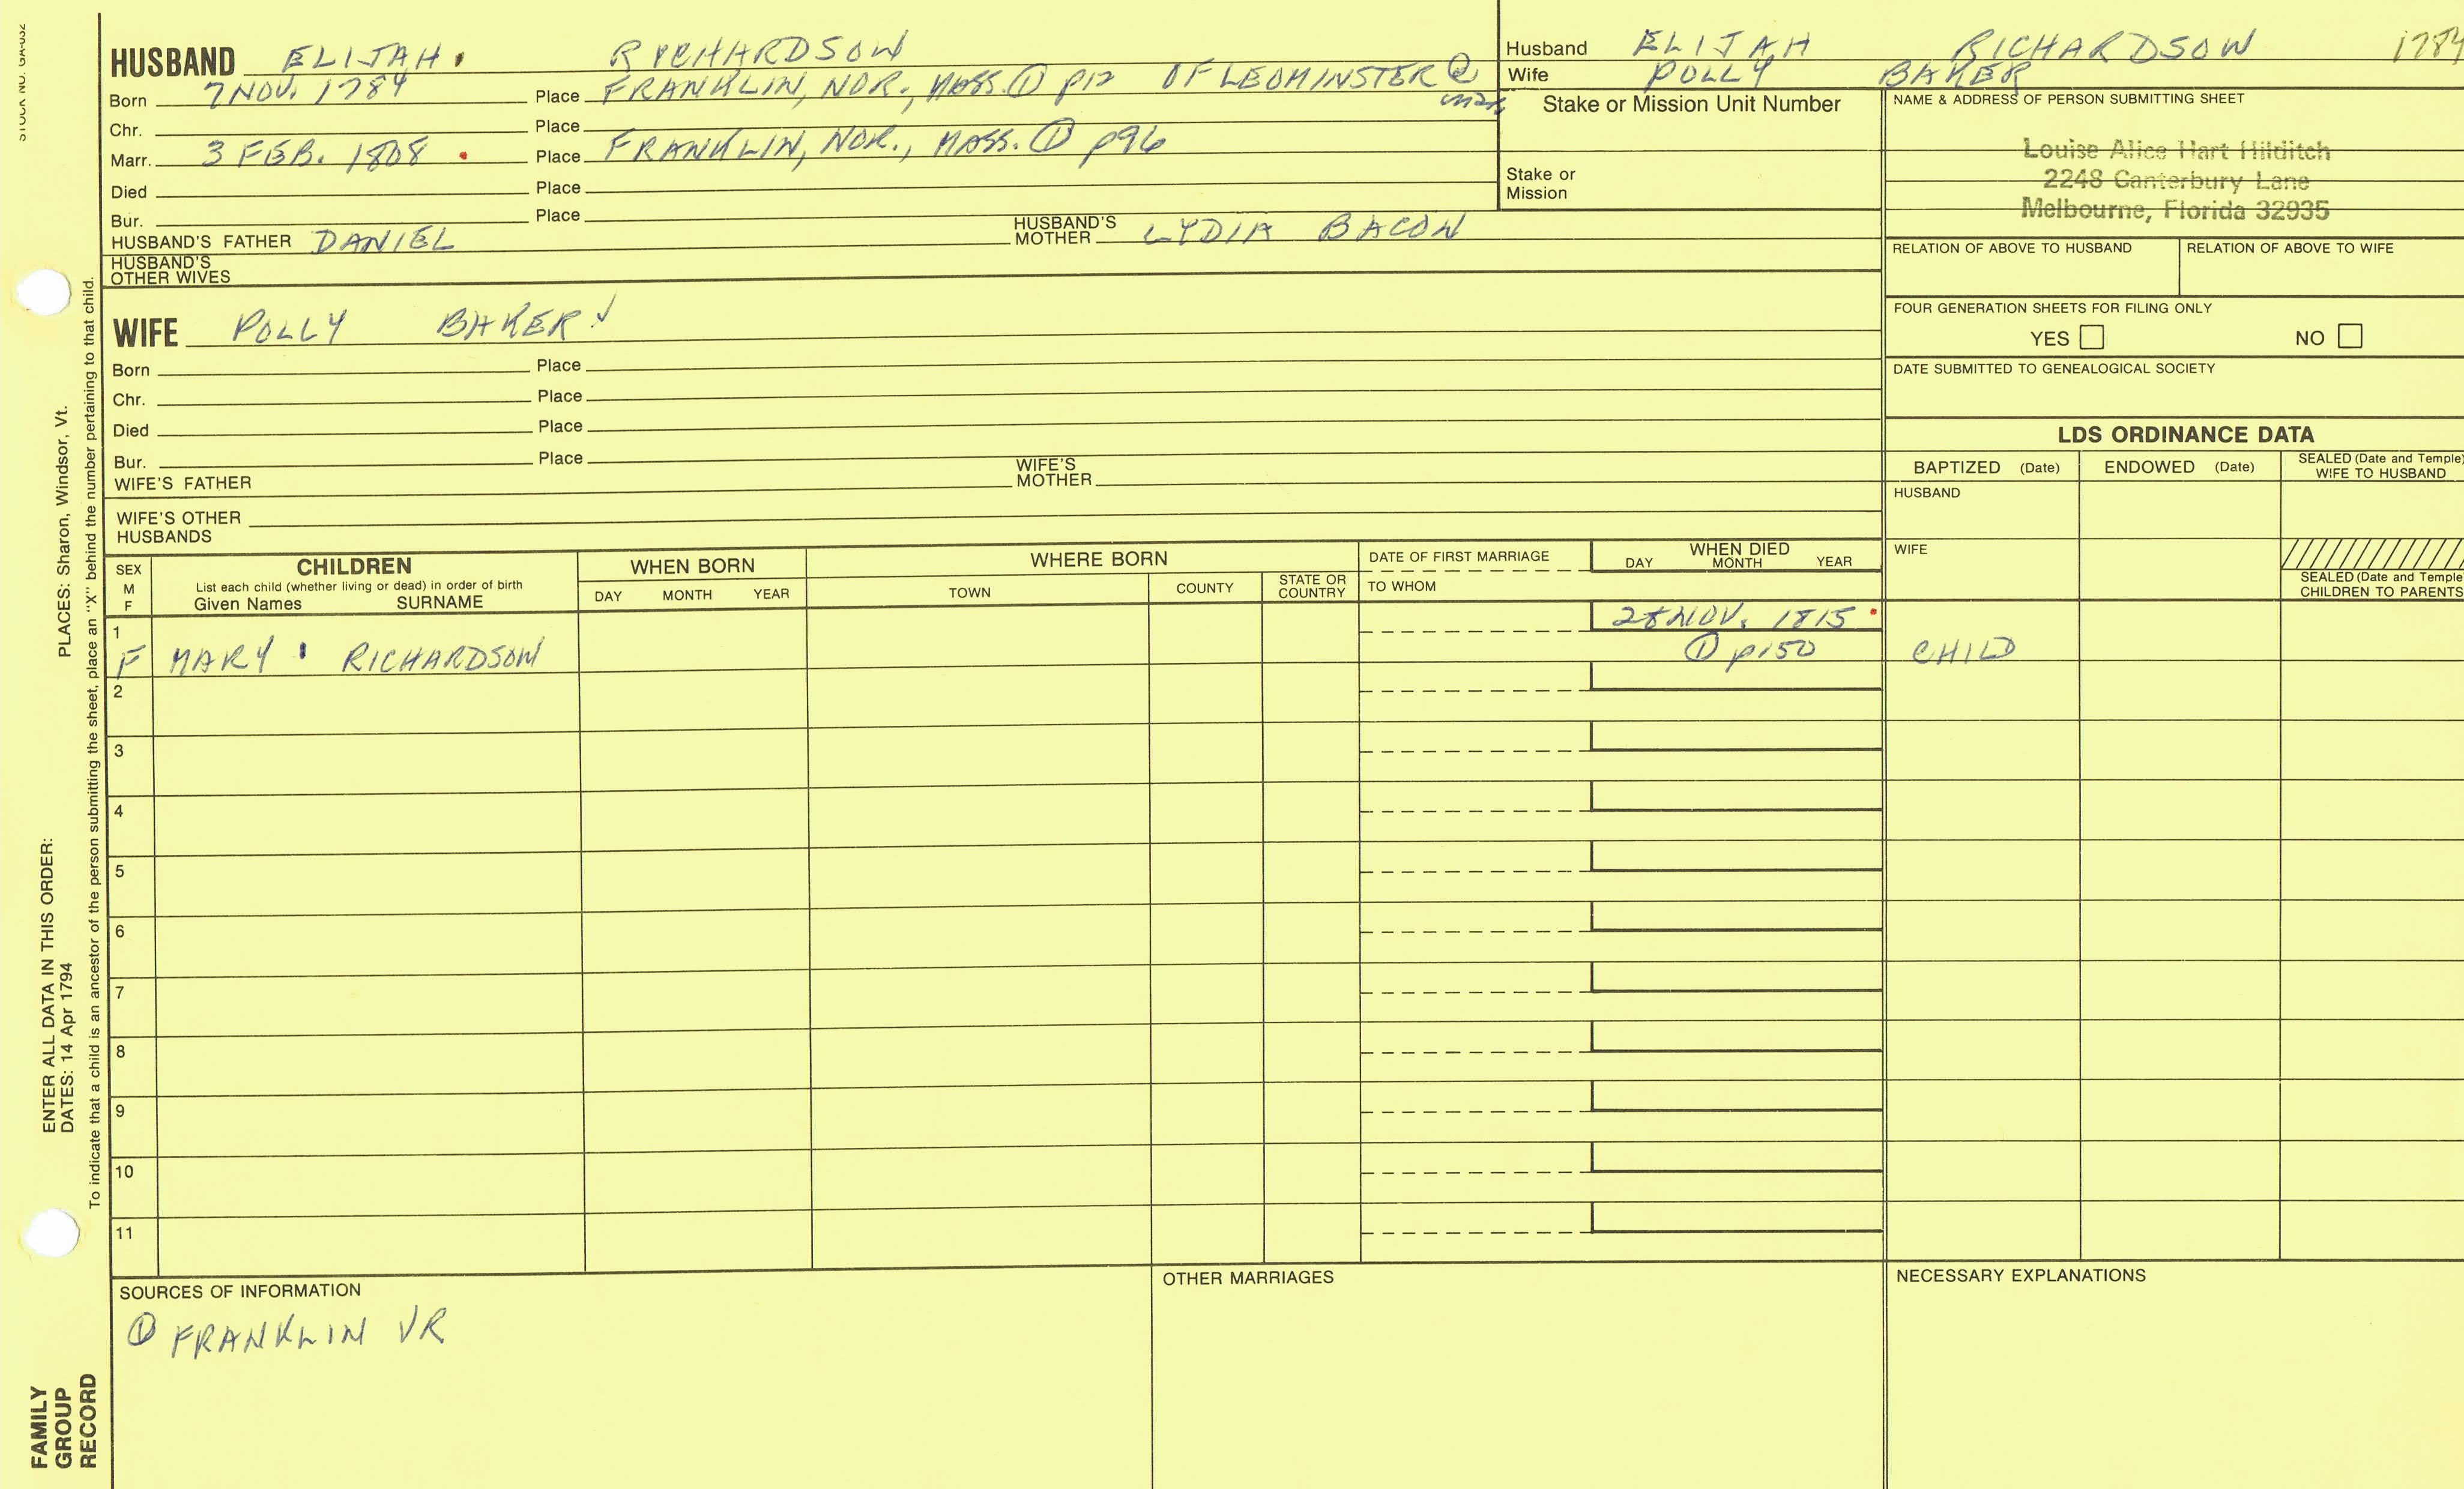 STOCK NO. GA-032
HUSBAND ELIJAH. RICHARDSON
Born 7 NOV. 1784 Place FRANKLIN, NOR., MASS. ① p12 OF LEOMINSTER @
Chr. Place
Marr. 3 FEB. 1808 Place FRANKLIN, NOR., MASS. ① p96
Died Place
Bur. Place
HUSBAND'S FATHER DANIEL HUSBAND'S MOTHER LYDIA BACON
HUSBAND'S OTHER WIVES
Husband ELIJAH RICHARDSON 1784
Wife POLLY BAKER
Stake or Mission Unit Number
Stake or
Mission
NAME & ADDRESS OF PERSON SUBMITTING SHEET
Louise Alice Hart Hilditch
2248 Canterbury Lane
Melbourne, Florida 32935
RELATION OF ABOVE TO HUSBAND RELATION OF ABOVE TO WIFE
FOUR GENERATION SHEETS FOR FILING ONLY
YES NO
DATE SUBMITTED TO GENEALOGICAL SOCIETY
WIFE POLLY BAKER ✓
Born Place
Chr. Place
Died Place
Bur. Place
WIFE'S FATHER WIFE'S MOTHER
WIFE'S OTHER
HUSBANDS
LDS ORDINANCE DATA
BAPTIZED (Date) ENDOWED (Date) SEALED (Date and Temple) WIFE TO HUSBAND
HUSBAND
WIFE
SEALED (Date and Temple) CHILDREN TO PARENTS
SEX M F
CHILDREN
List each child (whether living or dead) in order of birth
Given Names SURNAME
WHEN BORN
DAY MONTH YEAR
WHERE BORN
TOWN COUNTY STATE OR COUNTRY
DATE OF FIRST MARRIAGE
TO WHOM
WHEN DIED
DAY MONTH YEAR
1 28 NOV. 1815
F MARY RICHARDSON ① p150 CHILD
2
3
4
5
6
7
8
9
10
11
SOURCES OF INFORMATION
① FRANKLIN VR
OTHER MARRIAGES
NECESSARY EXPLANATIONS
PLACES: Sharon, Windsor, Vt.
ENTER ALL DATA IN THIS ORDER:
DATES: 14 Apr 1794
To indicate that a child is an ancestor of the person submitting the sheet, place an "X" behind the number pertaining to that child.
FAMILY
GROUP
RECORD